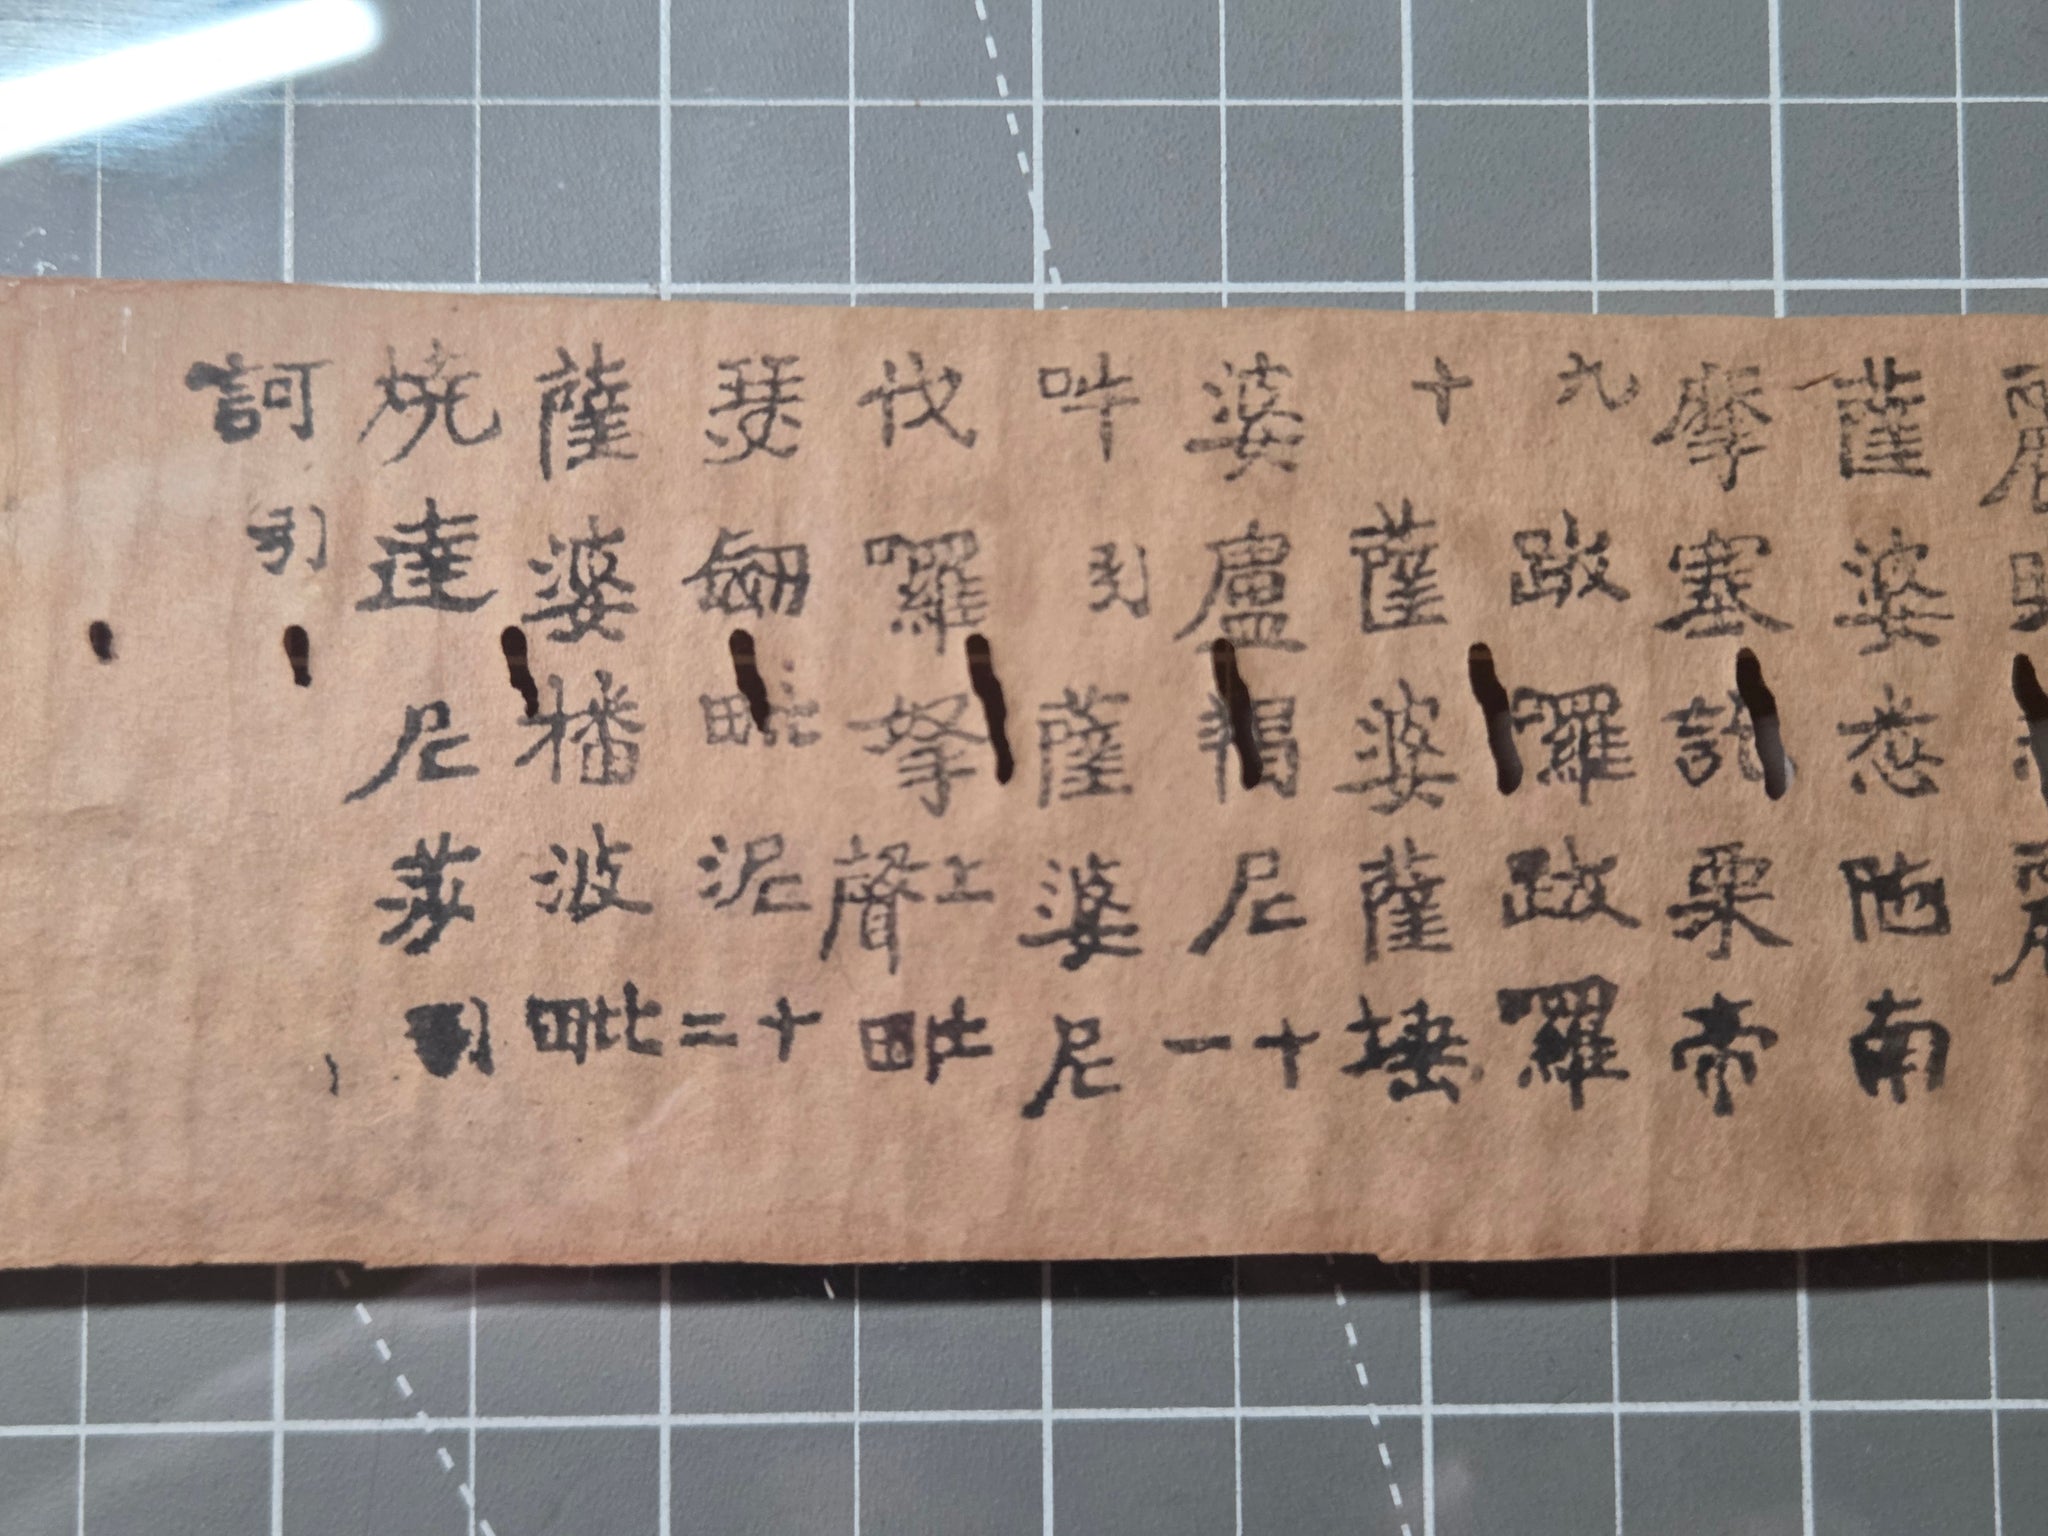 薩婆悉陁南
摩塞訖栗帝
九跋囉跋囉
十薩婆薩埵
婆盧羯尼十一
吽引薩婆尼
伐囉拏上聲毗
瑟劒毗泥十二
薩婆播波毗
燒達尼莎引
訶引